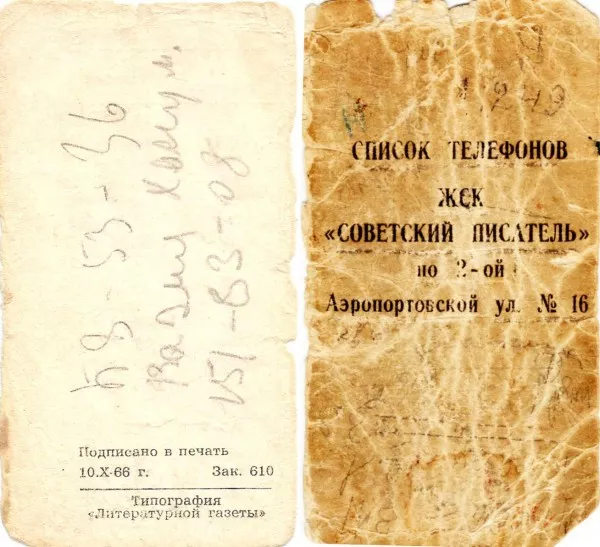 58-53-36
151-83-08
Подписано в печать
10.X-66 г. Зак. 610
Типография
«Литературной газеты»
249
СПИСОК ТЕЛЕФОНОВ
ЖСК
«СОВЕТСКИЙ ПИСАТЕЛЬ»
по 2-ой
Аэропортовской ул. № 16